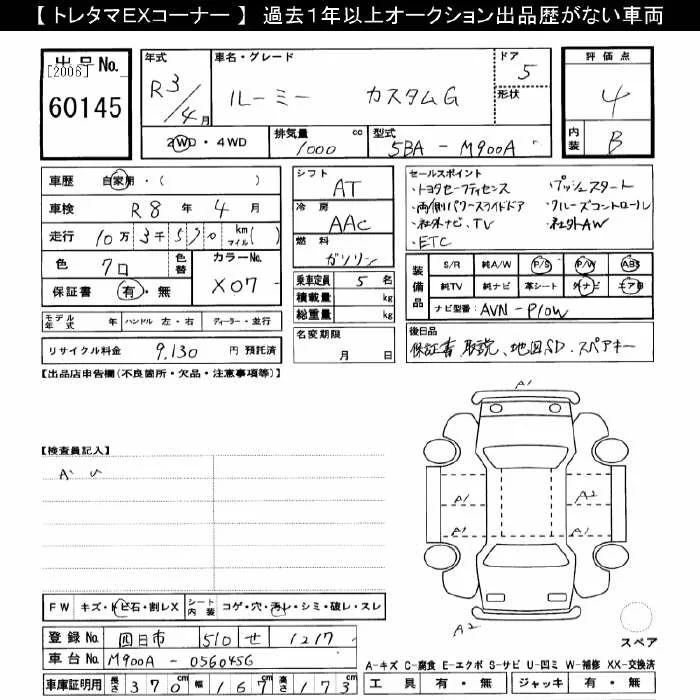 【 トレタマEXコーナー 】 過去1年以上オークション出品歴がない車両
出品No.
[2006]
60145
年式
R3/4月
車名・グレード
ルーミー カスタムG
ドア
5
形状
2WD・4WD
排気量
1000 cc
型式
5BA - M900A
評価点
4
内装
B
車歴 自家用・( )
車検 R8年 4月
走行 10万3千570 kmマイル( )
色 クロ
色替
カラーNo.
X07
保証書 有・無
モデル年式 年
ハンドル 左・右
ディーラー・並行
リサイクル料金 9,130 円 預託済
シフト
AT
冷房
AAC
燃料
ガソリン
乗車定員 5 名
積載量 kg
総重量 kg
名変期限
月 日
セールスポイント
・トヨタセーフティセンス ・プッシュスタート
・両側パワースライドドア ・クルーズコントロール
・社外ナビ、TV ・社外AW
・ETC
装備品
S/R 純A/W P/S P/W ABS
純TV 純ナビ 革シート 外ナビ エア用
ナビ型番: AVN-P10W
後日品
保証書 取説、地図SD、スペアキー
【出品店申告欄(不良箇所・欠品・注意事項等)】
【検査員記入】
A1
A1 A2
A1 A1
A2
スペア
FW キズ・トビ石・割レX
シート内装 コゲ・穴・汚レ・シミ・破レ・スレ
登録No. 四日市 510 せ 1217
車台No. M900A - 0560456
車庫証明用 長さ 370cm 幅 167cm 高さ 173cm
A-キズ C-腐食 E-エクボ S-サビ U-凹ミ W-補修 XX-交換済
工具 有・無 ジャッキ 有・無